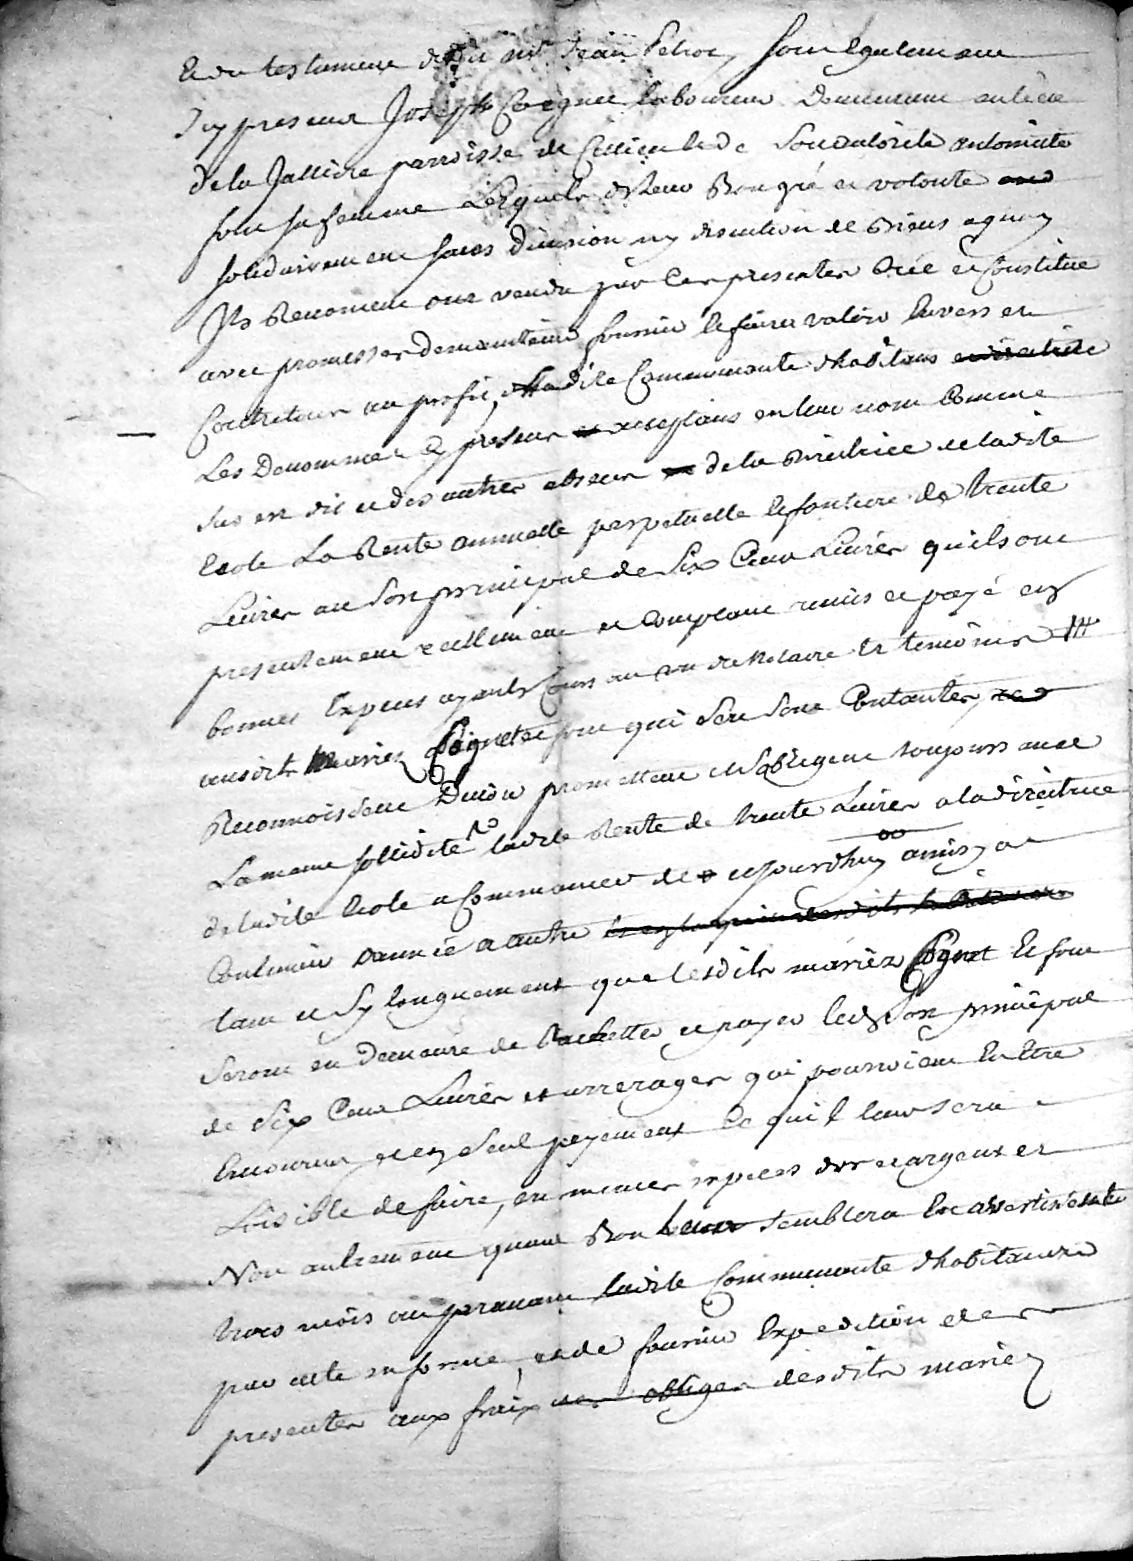 et du testament dudit mr Jean Petroz, sont egalement
Icy presens Joseph Coegnet laboureur demeurant au lieu
de la Jalliere parroisse de et de son autorité antoinette
font sa femme Lesquels de leur Bon gré et volonte
solidairement sans division ny discution de Biens a quoy
Ils Renoncent ont vendu par les presentes Créé et Constitué
avec promesses de maintenir fournir et faire valoir envers et
Contre tous au profit de ladite Communauté d'habitans
Les Denommez cy presens acceptans en leur nom Comme
dus est dit et des autres absens de la directrice de ladite
Ecole La Rente annuelle perpetuelle et fonciere de trente
Livres au sort principal de Six Cens Livres qu'ils ont
presentement reellement et Comptant remis et payé en
bonnes Especes ayants Cours au vu du Notaire et temoins
ausdits mariez Coignet et font qui s'en sont Contantez
Reconnoissent Devoir promettent et s'obligent toujours avec
La meme sollidité ladite Rente de trente Livres a la directrice
de ladite Ecole a Commancer de cejourdhuy ainsy a
Continuer d'année a autre
tant et sy longuement que lesdits mariez Cognet et font
seront en demeure de Rachetter et payer led. sort principal
de Six Cens Livres et arrerages qui pourroient en Etre
Encourus et en seul payement ce qu'il leur sera
Loisible de faire, en memes especes d'or et argent et
Non autrement quand Bon leur semblera En avertissant
trois mois auparavant ladite Communauté d'habitans
par acte en forme, et de fournir Expedition des
presentes aux fraix desdits mariez